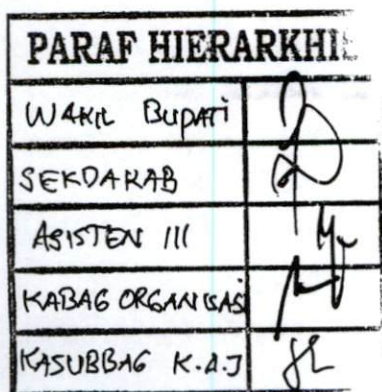 PARAF HIERARKHI
WAKIL BUPATI
SEKDAKAB
ASISTEN III
KABAG ORGANISASI
KASUBBAG K.A.J